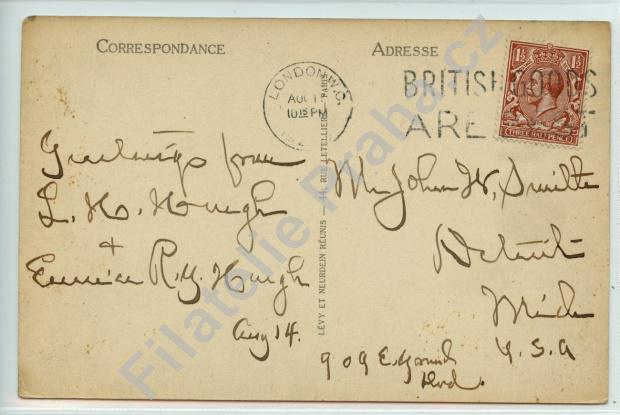 CORRESPONDANCE
ADRESSE
LONDON.W.C.
AUG 1
10 15 PM
BRITISH GOODS
ARE
1½ 1½
THREE HALF PENCE
Greetings from
L. H. Hough
+
R. Y. Hough
Aug 14.
LÉVY ET NEURDEIN RÉUNIS — 44, RUE LETELLIER — PARIS
Mr John W. Smith
Detroit
Mich
U.S.A
909 E. Grand
Blvd.
Filatelie Praha.cz